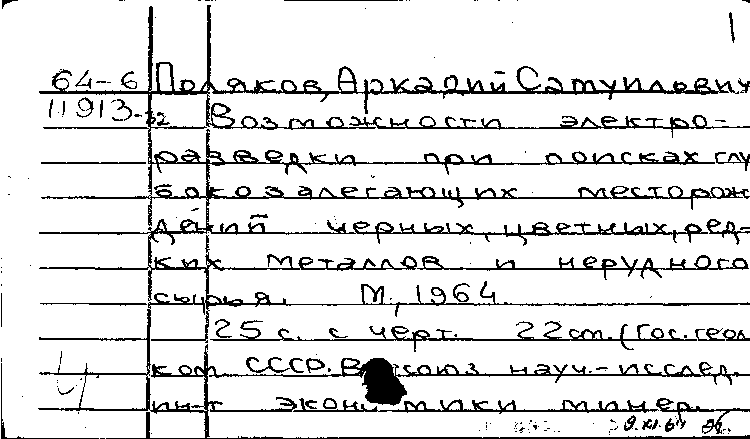 64-6 Поляков, Аркадий Самуилович
11913-32 Возможности электро-
разведки при поисках глу
бокозалегающих месторож
дений черных, цветных, ред-
ких металлов и нерудного
сырья. М., 1964.
25 с. с черт. 22 cm. (Гос. геол
ком СССР. Всесоюз науч.-исслед.
ин-т экономики минер.
9.XI.64